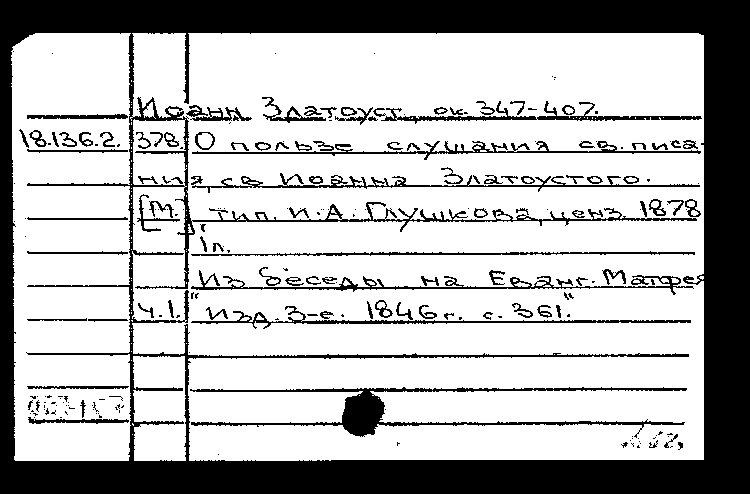 Иоанн Златоуст, ок. 347-407.
18.136.2. 378. О пользе слушания св. писа-
ния, св. Иоанна Златоустого.
[М.], тип. И.А. Глушкова, ценз. 1878
1л.
Из беседы на Еванг. Матфея
ч.1. "Изд. 3-е. 1846 г. с. 361."